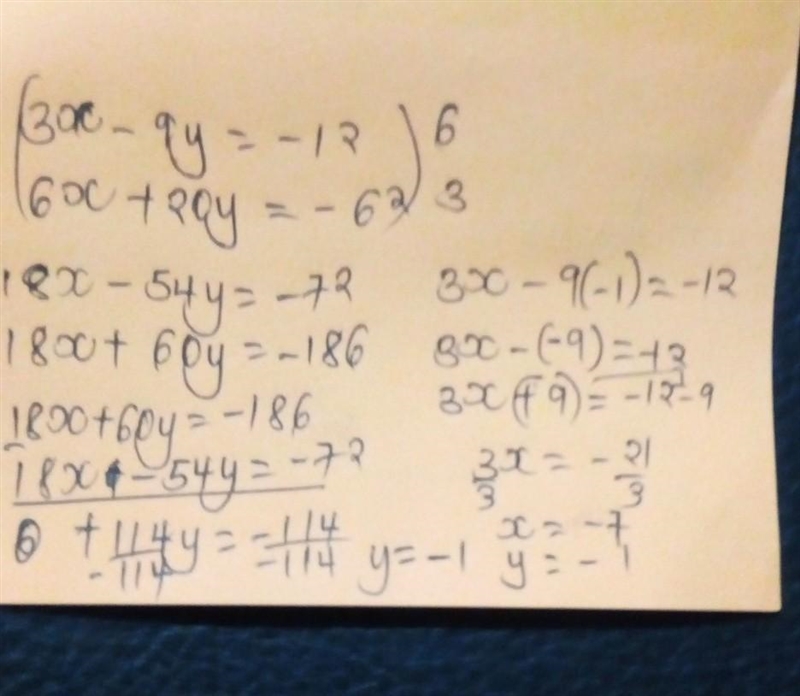 3x - 9y = -12 ) 6
6x + 20y = -62 ) 3
18x - 54y = -72
18x + 60y = -186
18x + 60y = -186
18x - 54y = -72
0 + 114y = -114
-114 -114 y = -1
3x - 9(-1) = -12
3x - (-9) = -12
3x (+9) = -12 - 9
3x = -21
3 3
x = -7
y = -1